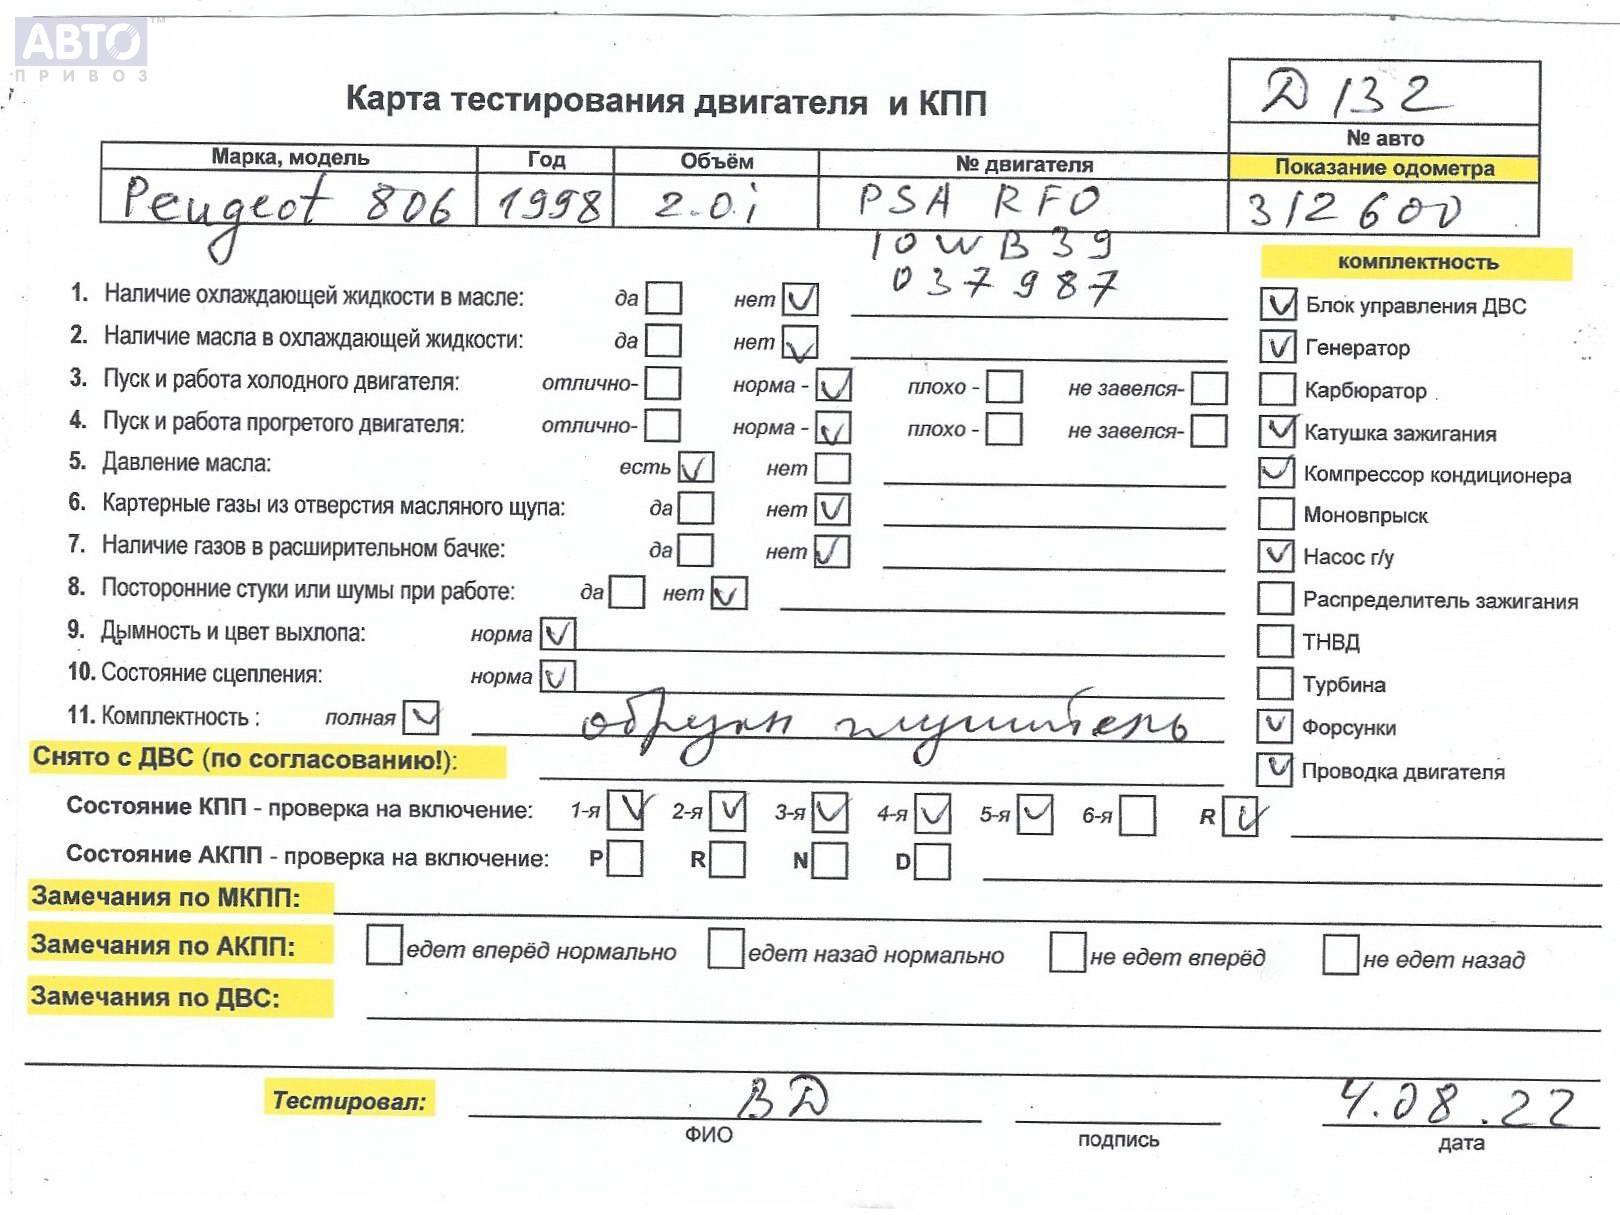 АВТО™
ПРИВОЗ
Карта тестирования двигателя и КПП
Д 132
№ авто
Марка, модель Год Объём № двигателя Показание одометра
Peugeot 806 1998 2.0i PSA RFO 312600
10WB39
037987
комплектность
1. Наличие охлаждающей жидкости в масле: да нет
2. Наличие масла в охлаждающей жидкости: да нет
3. Пуск и работа холодного двигателя: отлично- норма - плохо - не завелся-
4. Пуск и работа прогретого двигателя: отлично- норма - плохо - не завелся-
5. Давление масла: есть нет
6. Картерные газы из отверстия масляного щупа: да нет
7. Наличие газов в расширительном бачке: да нет
8. Посторонние стуки или шумы при работе: да нет
9. Дымность и цвет выхлопа: норма
10. Состояние сцепления: норма
11. Комплектность : полная обрезан глушитель
Блок управления ДВС
Генератор
Карбюратор
Катушка зажигания
Компрессор кондиционера
Моновпрыск
Насос г/у
Распределитель зажигания
ТНВД
Турбина
Форсунки
Проводка двигателя
Снято с ДВС (по согласованию!):
Состояние КПП - проверка на включение: 1-я 2-я 3-я 4-я 5-я 6-я R
Состояние АКПП - проверка на включение: P R N D
Замечания по МКПП:
Замечания по АКПП: едет вперёд нормально едет назад нормально не едет вперёд не едет назад
Замечания по ДВС:
Тестировал: ВД 4.08.22
ФИО подпись дата